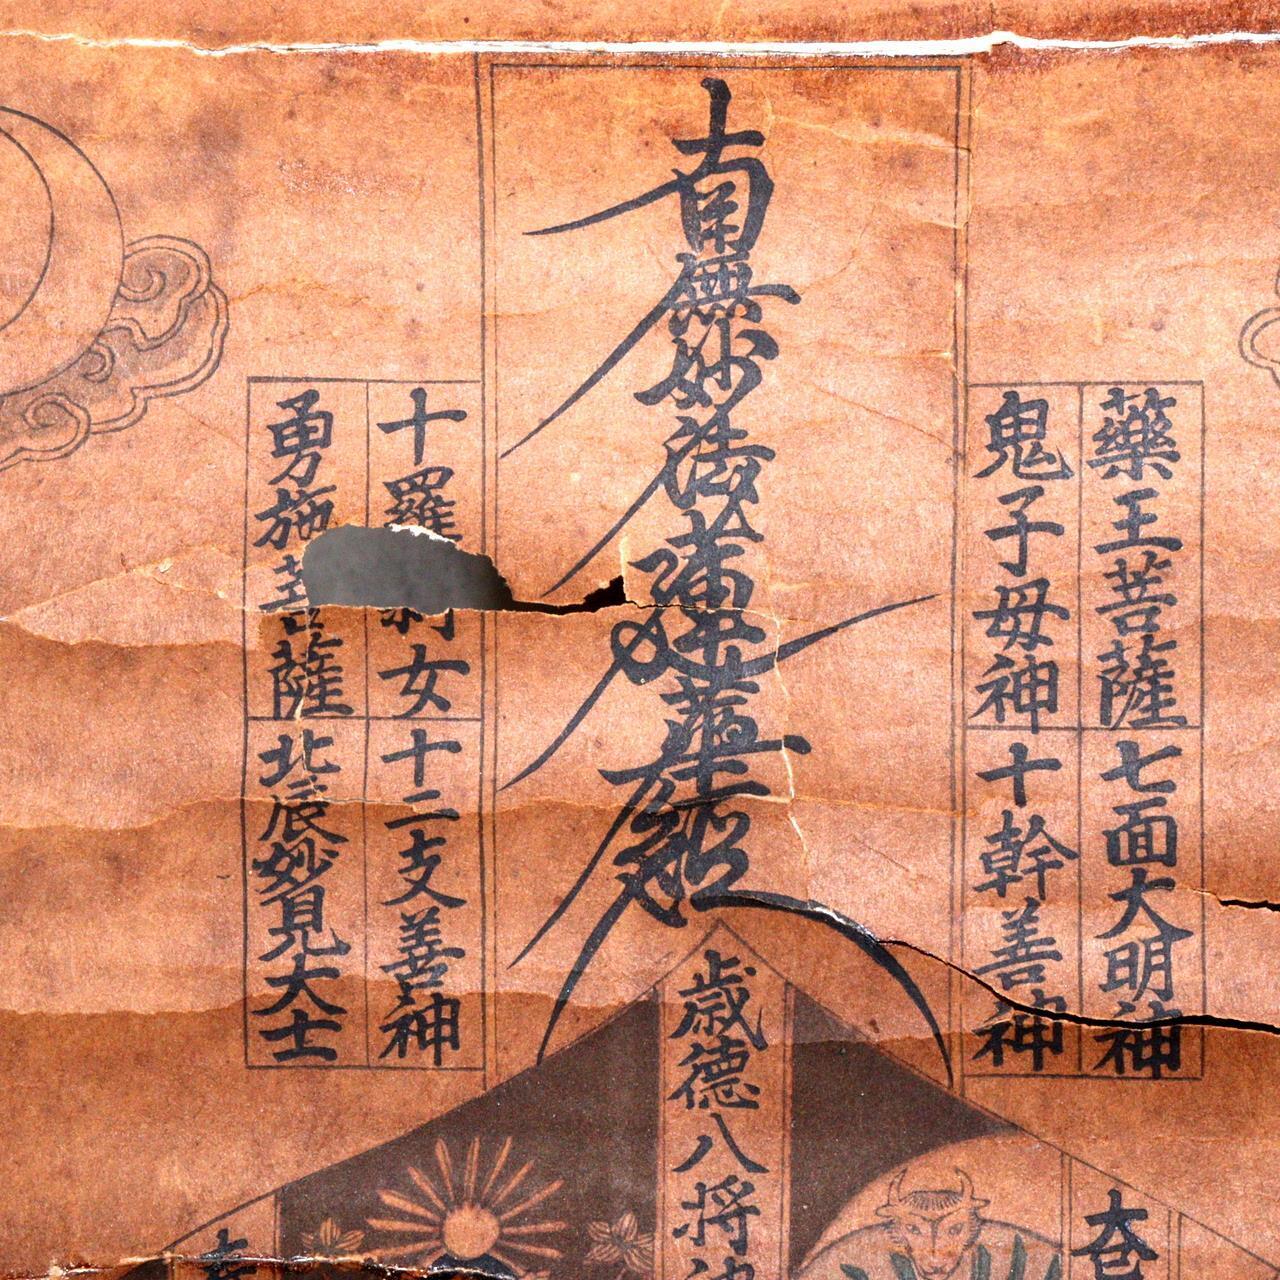 藥王菩薩
七面大明神
鬼子母神
十幹善神
南無妙法蓮華經
十羅刹女
十二支善神
勇施菩薩
北辰妙見大士
歳德八将神